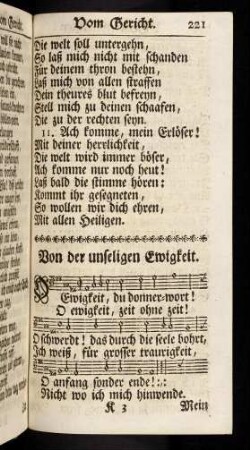 Vom Gericht. 221
Die welt soll untergehn,
So laß mich nicht mit schanden
Für deinem thron bestehn,
Laß mich von allen straffen
Dein theures blut befreyn,
Stell mich zu deinen schaafen,
Die zu der rechten seyn.
11. Ach komme, mein Erlöser!
Mit deiner herrlichkeit,
Die welt wird immer böser,
Ach komme nur noch heut!
Laß bald die stimme hören:
Kommt ihr gesegneten,
So wollen wir dich ehren,
Mit allen Heiligen.
Von der unseligen Ewigkeit.
O Ewigkeit, du donner-wort!
O ewigkeit, zeit ohne zeit!
O schwerdt! das durch die seele bohrt,
Ich weiß, für grosser traurigkeit,
O anfang sonder ende! :,:
Nicht wo ich mich hinwende.
K 3 Mein